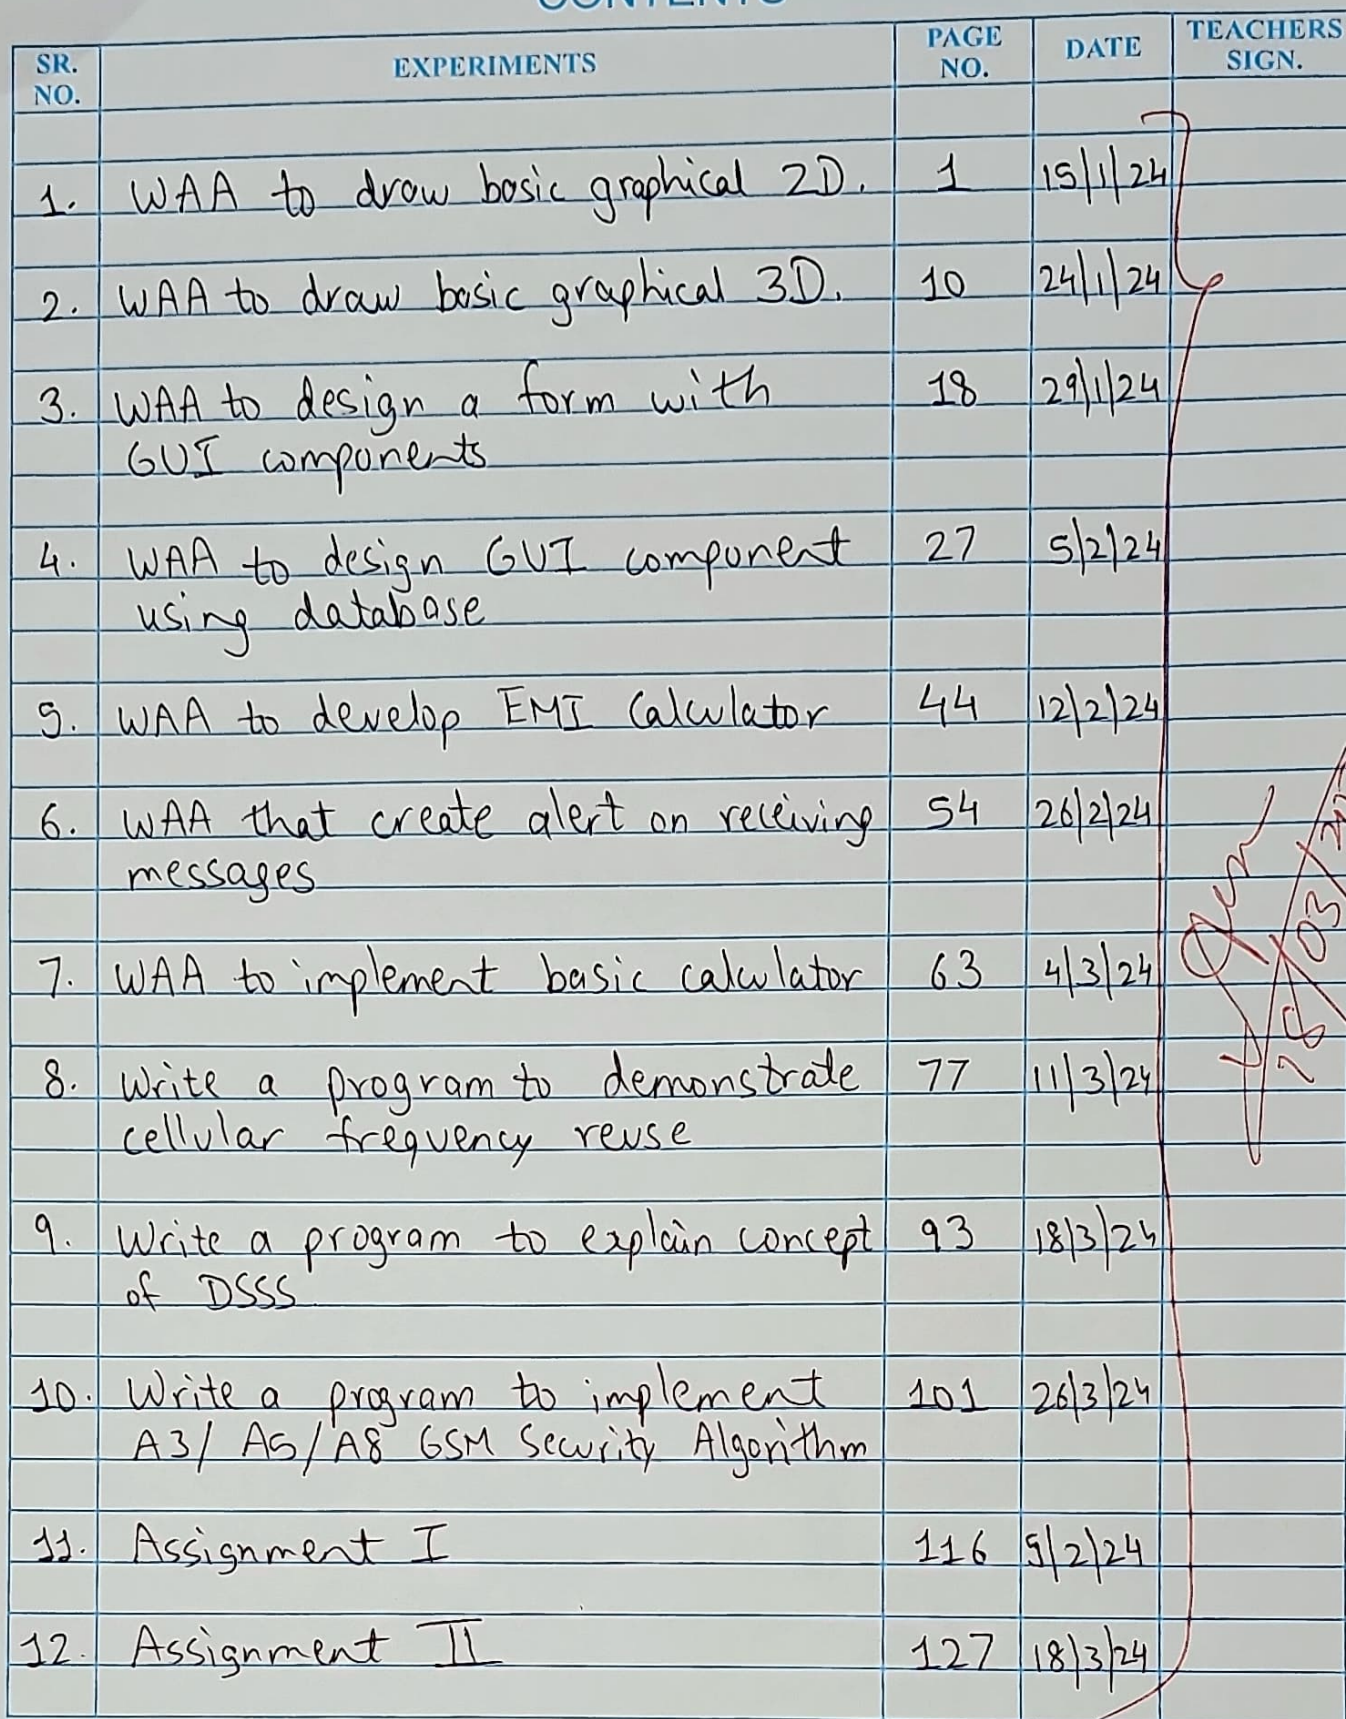 CONTENTS
SR. NO. EXPERIMENTS PAGE NO. DATE TEACHERS SIGN.
1. WAA to draw basic graphical 2D. 1 15/1/24
2. WAA to draw basic graphical 3D. 10 24/1/24
3. WAA to design a form with 18 29/1/24
GUI components
4. WAA to design GUI component 27 5/2/24
using database
5. WAA to develop EMI Calculator 44 12/2/24
6. WAA that create alert on receiving 54 26/2/24
messages
7. WAA to implement basic calculator 63 4/3/24
8. Write a program to demonstrate 77 11/3/24
cellular frequency reuse
9. Write a program to explain concept 93 18/3/24
of DSSS
10. Write a program to implement 101 26/3/24
A3/ A5/A8 GSM Security Algorithm
11. Assignment I 116 5/2/24
12. Assignment II 127 18/3/24